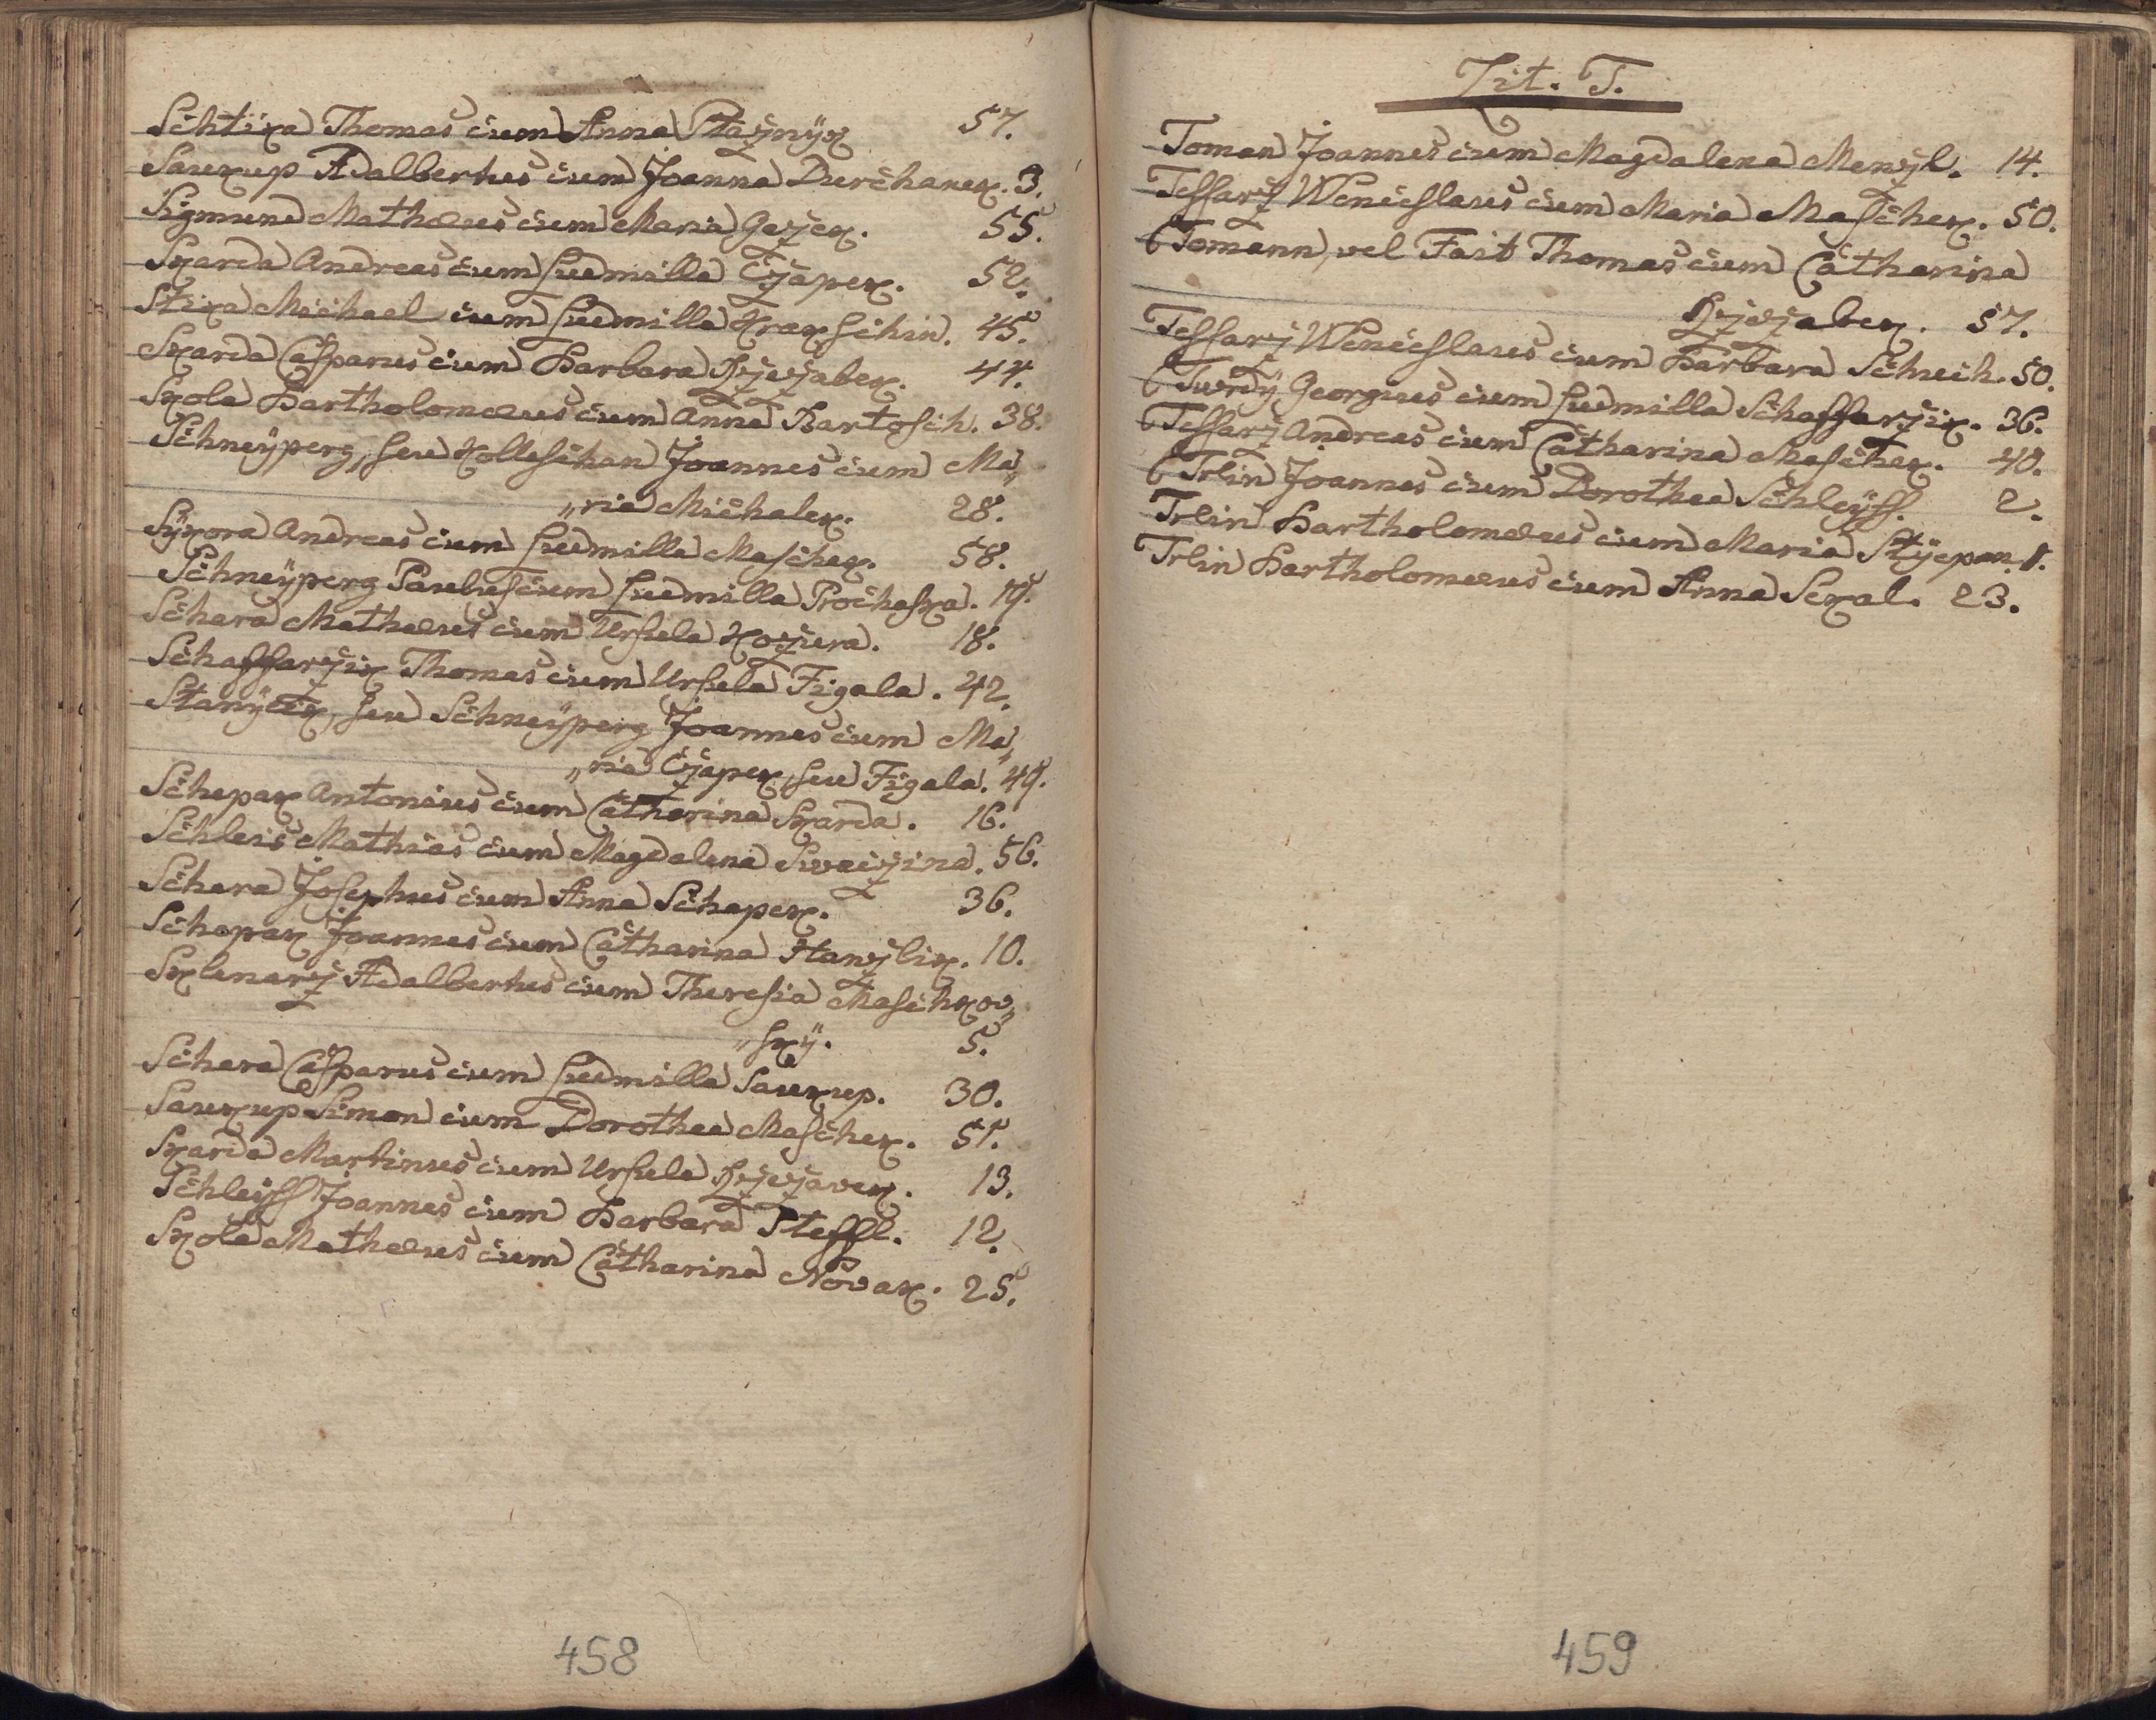 Schtika Thomas cum Anna Staznÿk 57.
Saukup Adalbertus cum Joanna Durchanek. 3.
Sigmund Mathæus cum Maria Gezek. 55.
Skarda Andreas cum Ludmilla Czapek. 52.
Stika Michael cum Ludmilla Krakschin. 45.
Skarda Casparus cum Barbara Hrzrzabek. 44.
Skola Bartholomæus cum Anna Bartosch. 38.
Schneÿperg, seu Kolleschan Joannes cum Ma„
„ria Michalek. 28.
Sÿkora Andreas cum Ludmilla Maschek. 58.
Schneÿperg Paulus cum Ludmilla Prochaska. 19.
Schara Mathæus cum Ursula Kozura. 18.
Schaffarzik Thomas cum Ursula Figala. 42.
seu Schneÿperg Joannes cum Ma„
„ria Czapek, seu Figala. 49.
Schepak Antonius cum Catharina Skarda. 16.
Schleis Mathias cum Magdalena Swaczina. 56.
Schara Josephus cum Anna Schapek. 36.
Schopak Joannes cum Catharina Hawlik. 10.
Sklenarz Adalbertus cum Theresia Maschkow„
„skÿ. 5.
Schara Casparus cum Ludmilla Saukup. 30.
Saukup Simon cum Dorothea Maschek. 51.
Skarda Martinus cum Ursula Hrzrzavek. 13.
Schleÿss Joannes cum Barbara Steffl. 12.
Skola Mathæus cum Catharina Novak. 25.
458
Lit. T.
Toman Joannes cum Magdalena Menzl. 14.
Tessarz Wenceslaus cum Maria Maschek. 50.
Tomann, vel Fait Thomas cum Catharina
Hrzrzabek. 57.
Tessarz Wenceslaus cum Barbara Schuch. 50.
Twrdÿ Georgius cum Ludmilla Schaffarzik. 36.
Tessarz Andreas cum Catharina Maschek. 40.
Trlin Joannes cum Dorothea Schleÿss. 2.
Trlin Bartholomæus cum Maria Stÿepan. 1.
Trlin Bartholomæus cum Anna Sekal. 23.
459